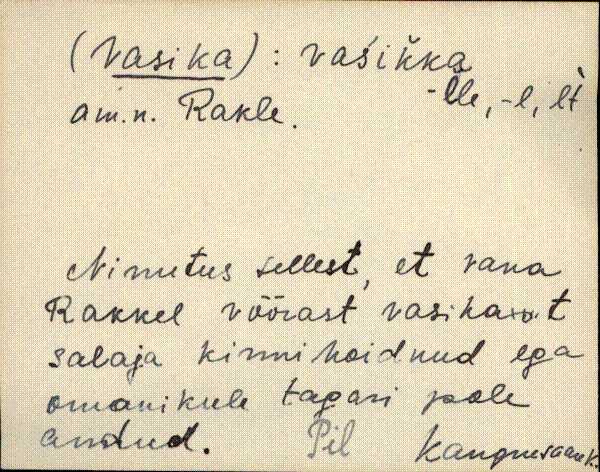 (Vasika) : vaśikka
-lle, -l, lt
am.n. Rakle.
Nimetus sellest, et vana
Rakkel võõrast vasikat
salaja kinni hoidnud ega
omanikule tagasi pole
andnud. Pil